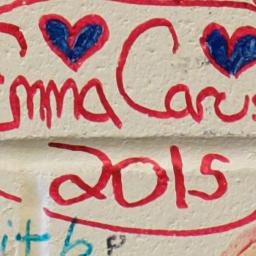 Emma Carus
2015
it b P